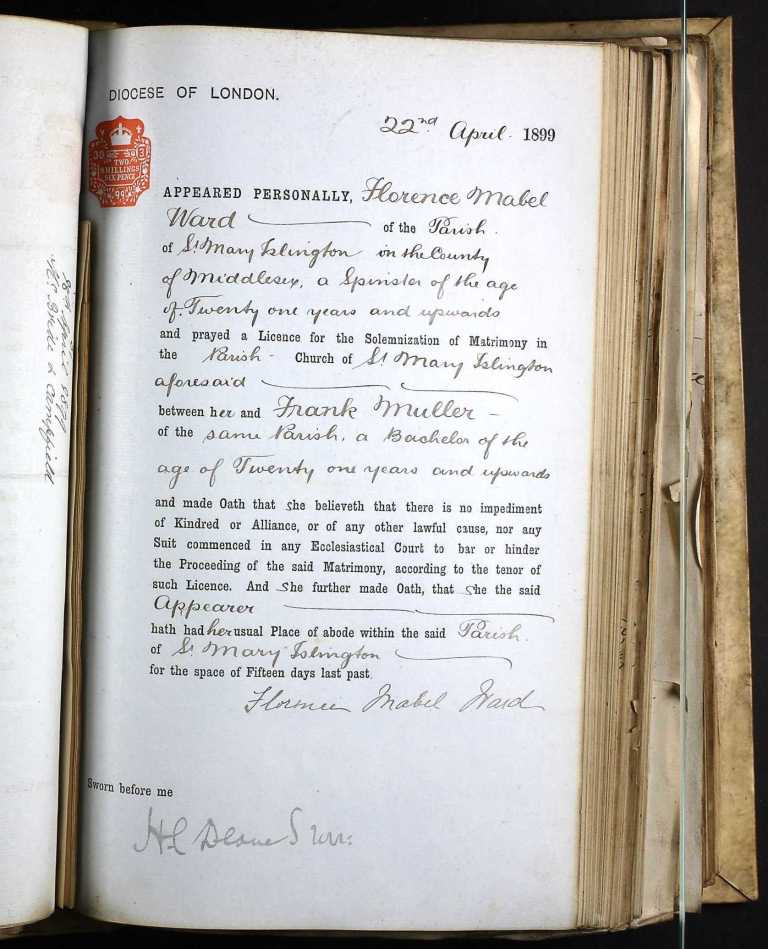 DIOCESE OF LONDON.
22nd April 1899
30 3
TWO
SHILLINGS
SIX PENCE
99
APPEARED PERSONALLY, Florence Mabel
Ward of the Parish
of St Mary Islington in the County
of Middlesex, a Spinster of the age
of Twenty one years and upwards
and prayed a Licence for the Solemnization of Matrimony in
the Parish Church of St Mary Islington
aforesaid
between her and Frank Muller
of the same Parish, a Bachelor of the
age of Twenty one years and upwards
and made Oath that she believeth that there is no impediment
of Kindred or Alliance, or of any other lawful cause, nor any
Suit commenced in any Ecclesiastical Court to bar or hinder
the Proceeding of the said Matrimony, according to the tenor of
such Licence. And She further made Oath, that She the said
Appearer
hath had her usual Place of abode within the said Parish
of St Mary Islington
for the space of Fifteen days last past.
Florence Mabel Ward
Sworn before me
H C Deane Surr:
April